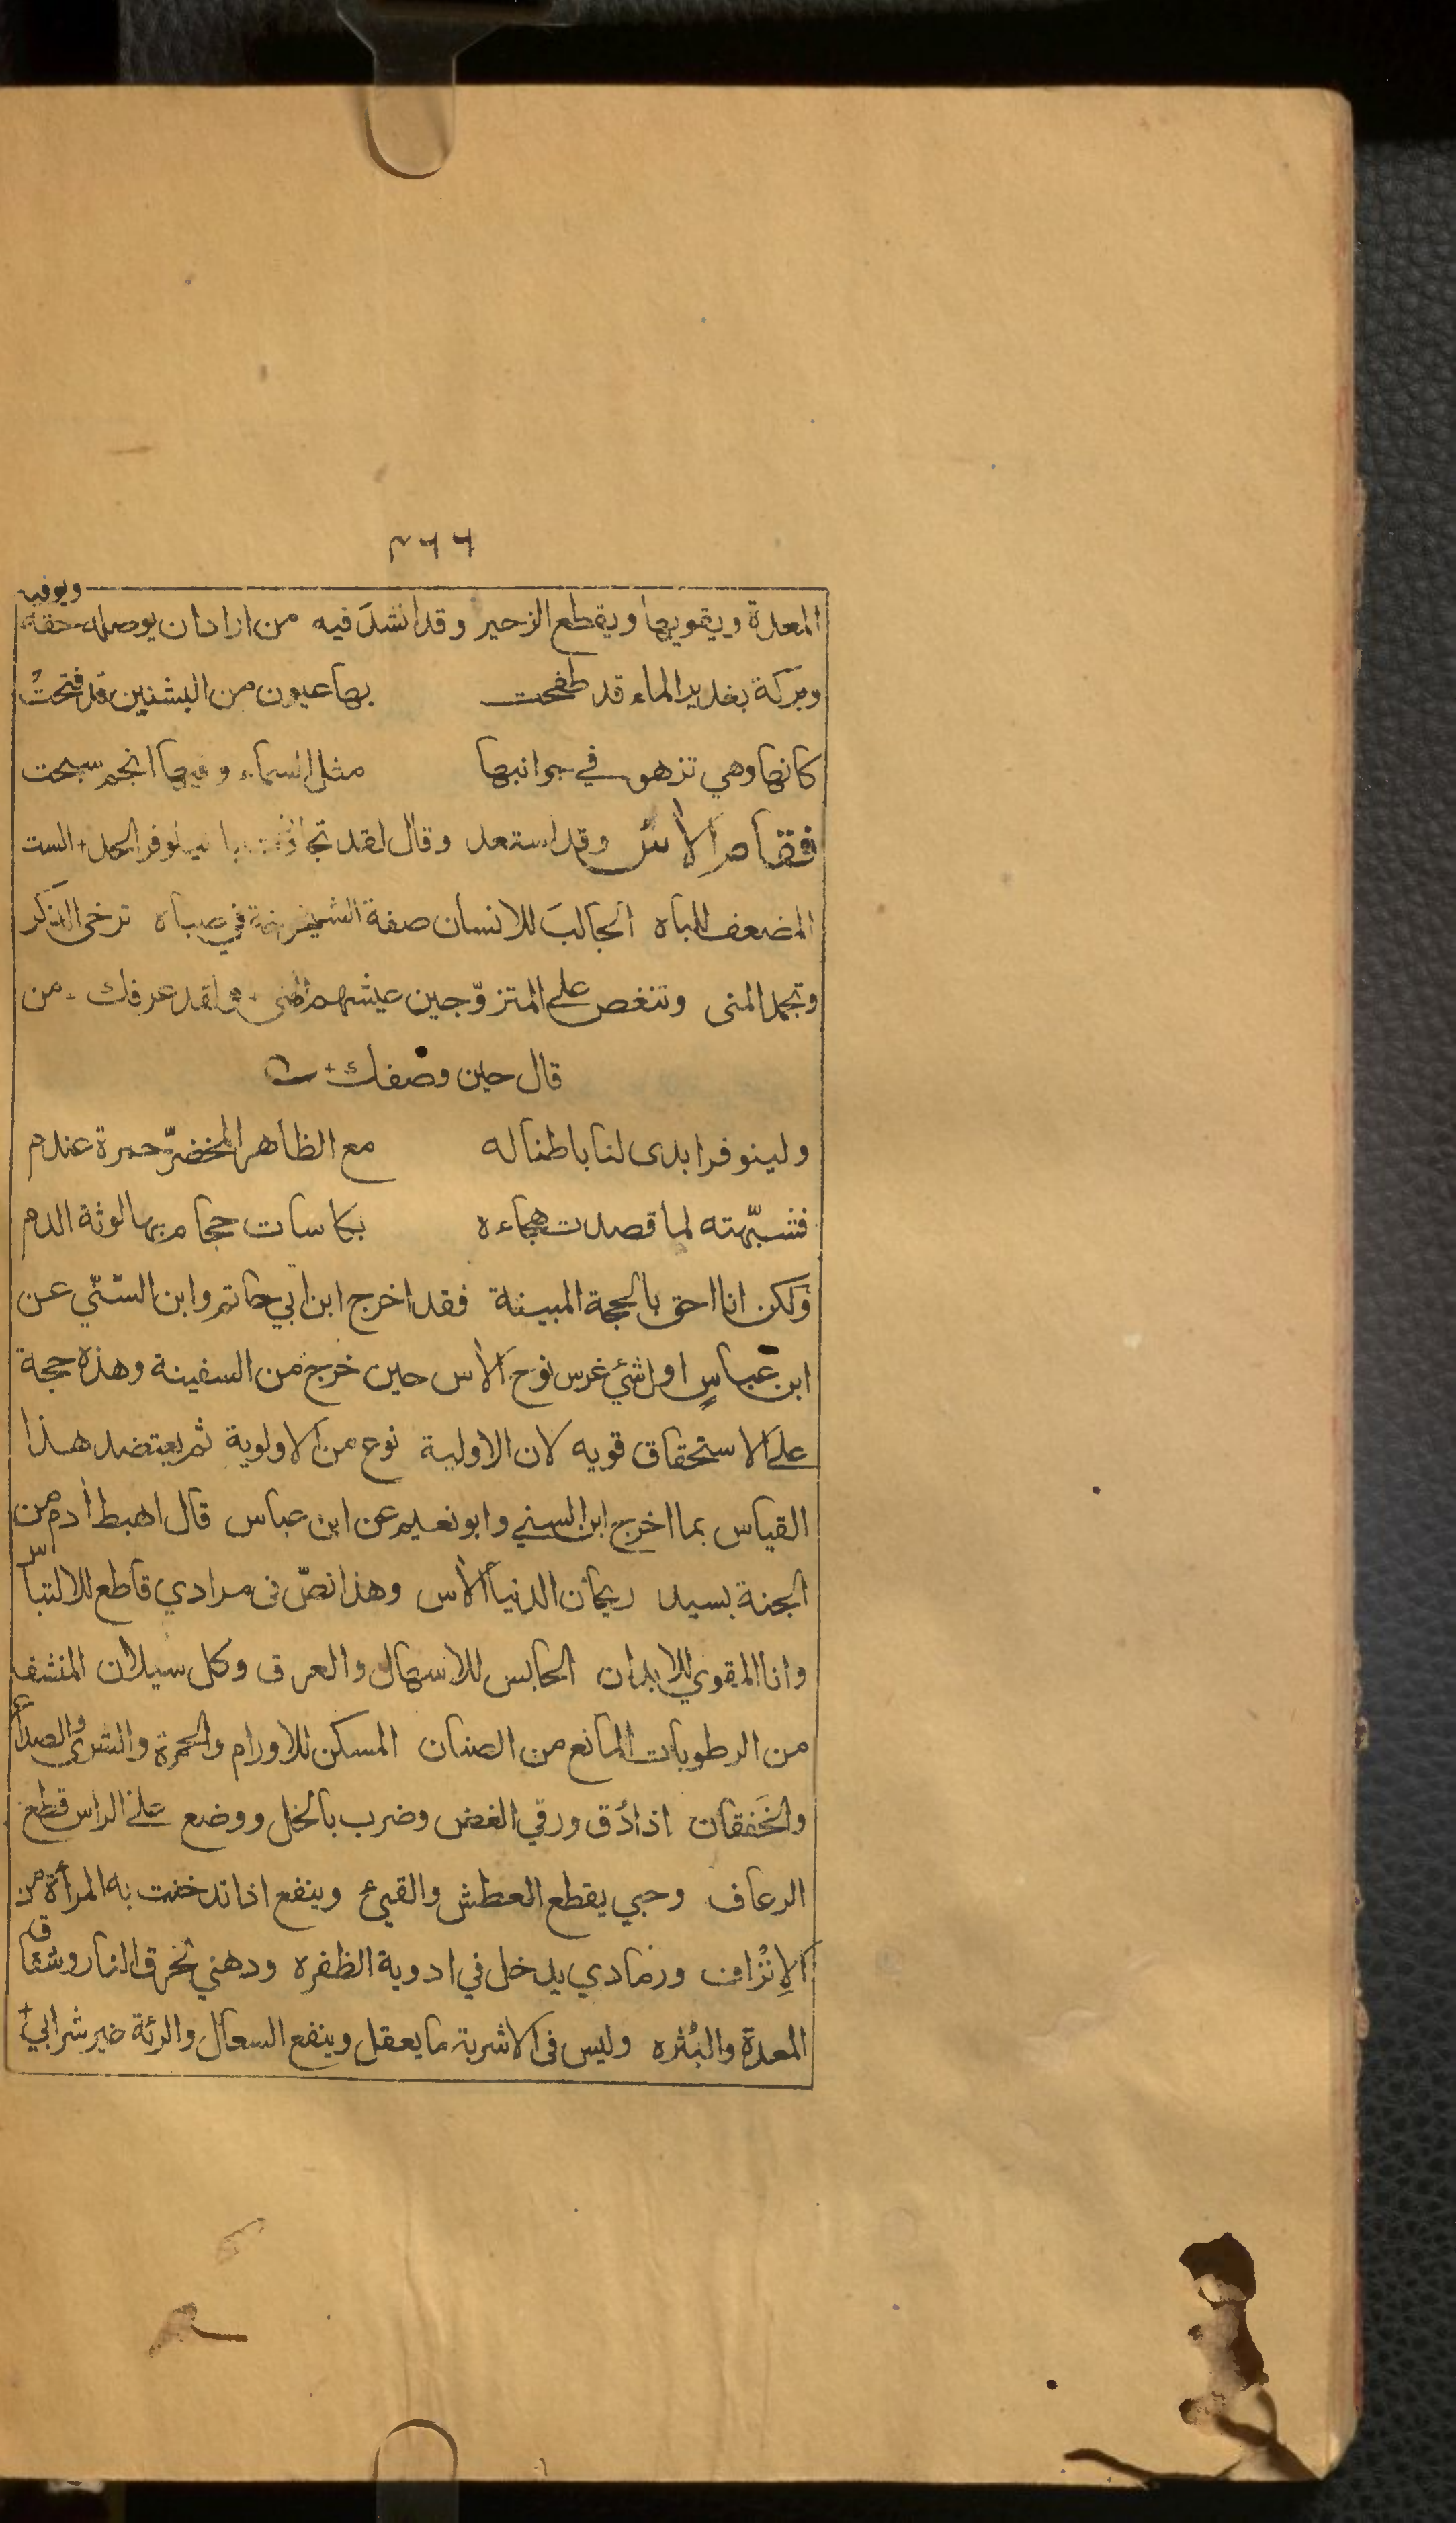 ٣٦٦
المعدة ويقويها ويقطع الزحير وقد انشدَ فيه من اراد ان يوصله حقه ويوفيه
وبركة بغدير الماء قد طفحت بها عيون من البشنين قد فتحتْ
كانها وهي تزهو في جوانبها مثل السماء وفيها انجم سبحت
فقام الآس وقد استعد وقال لقد تجاوزت يا نيلوفر الحد + الست
المضعف للباه الجالبَ للانسان صفة الشيخوخة في صباه ترخى الذكر
وتجمد المنى وتنغص على المتزوّجين عيشهم الهنى + ولقد عرفك + من
قال حين وصفك +
ولينوفر ابدى لنا باطنا له مع الظاهر المخضرّ حمرة عندم
فشبّهته لما قصدت هجاءه بكاسات حجام بها لوثة الدم
ولكن انا احق بالحجة المبينة فقد اخرج ابن ابي حاتم وابن السّنّي عن
ابن عباسٍ اول شئ غرس نوح الآس حين خرج من السفينة وهذه حجة
على الاستحقاق قويه لان الاولية نوع من الاولوية ثم يعتضد هذا
القياس بما اخرج ابن السني وابو نعيم عن ابن عباس قال اهبط آدم من
الجنة بسيد ريحان الدنيا الآس وهذا نصّ فى مرادي قاطع للالتباس
وانا المقوي للابدان الحابس للاسهال والعرق وكل سيلان المنشف
من الرطوبات المانع من الصنان المسكن للاورام والحمرة والشرى والصداع
والخَفقان اذا دُق ورقي الغض وضرب بالخل ووضع على الراس قطع
الرعاف وحبي يقطع العطش والقيئ وينفع اذا تدخنت به المرأة من
الإنْزاف ورمادي يدخل في ادوية الظفره ودهني لحرق النار وشقاق
المعدة والبُثره وليس فى الاشربة ما يعقل وينفع السعال والرئة خير شرابي +